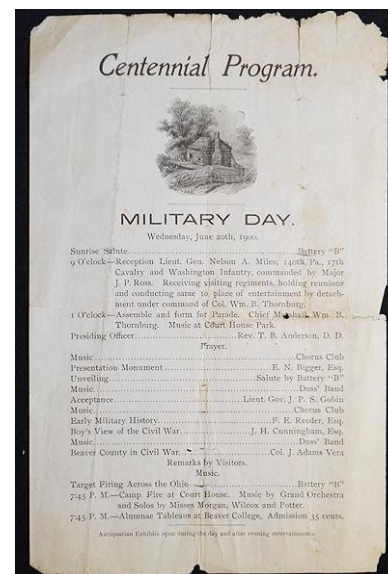 Centennial Program.
MILITARY DAY.
Wednesday, June 20th, 1900.
Sunrise Salute........Battery "B"
9 O'clock—Reception Lieut. Gen. Nelson A. Miles; 140th Pa., 17th
Cavalry and Washington Infantry, commanded by Major
J. P. Ross. Receiving visiting regiments, holding reunions
and conducting same to place of entertainment by detach-
ment under command of Col. Wm. B. Thornburg.
1 O'clock—Assemble and form for Parade. Chief Marshall Wm. B.
Thornburg. Music at Court House Park.
Presiding Officer........Rev. T. B. Anderson, D. D.
Prayer.
Music........Chorus Club
Presentation Monument........E. N. Bigger, Esq.
Unveiling........Salute by Battery "B"
Music........Duss' Band
Acceptance........Lieut. Gov. J. P. S. Gobin
Music........Chorus Club
Early Military History........F. E. Reader, Esq.
Boy's View of the Civil War........J. H. Cunningham, Esq.
Music........Duss' Band
Beaver County in Civil War........Col. J. Adams Vera
Remarks by Visitors.
Music.
Target Firing Across the Ohio........Battery "B"
7:45 P. M.—Camp Fire at Court House. Music by Grand Orchestra
and Solos by Misses Morgan, Wilcox and Potter.
7:45 P. M.—Alumnae Tableaus at Beaver College, Admission 35 cents.
Antiquarian Exhibits open during the day and after evening entertainments.